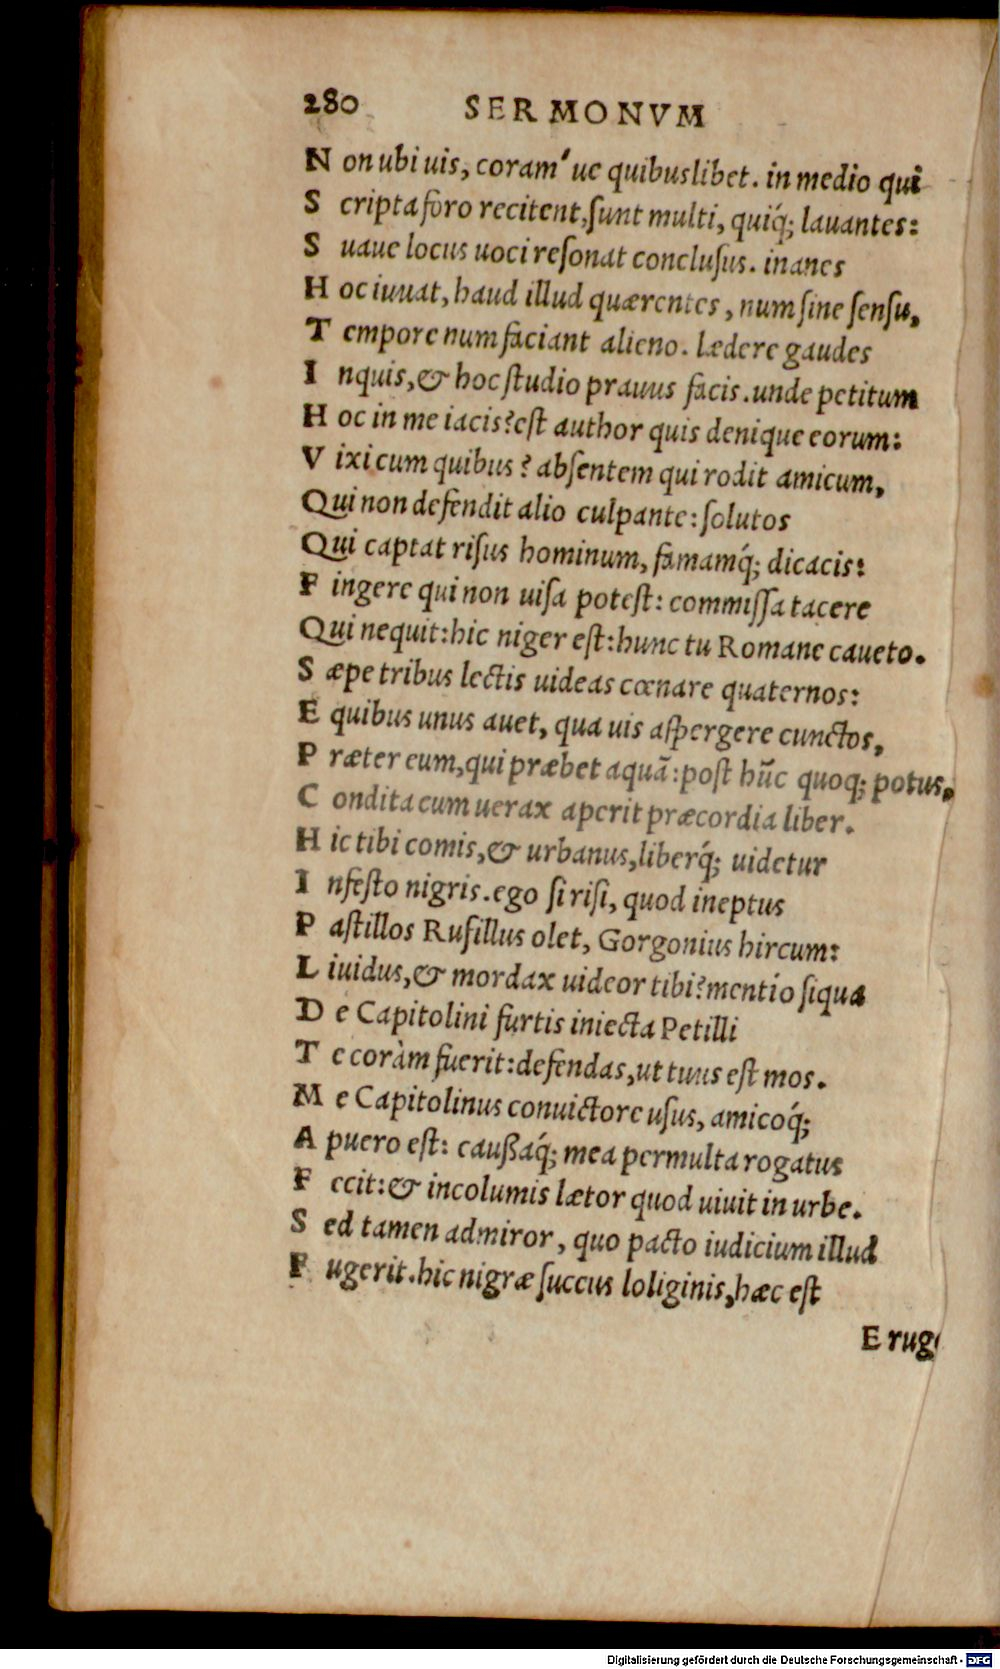 280 SERMONVM
N on ubi uis, coram'ue quibuslibet. in medio qui
S cripta foro recitent, ſunt multi, quiq́; lauantes:
S uaue locus uoci reſonat concluſus. inanes
H oc iuuat, haud illud quærentes, num ſine ſenſu,
T empore num faciant alieno. lædere gaudes
I nquis, & hoc ſtudio prauus facis. unde petitum
H oc in me iacis? eſt author quis denique eorum:
V ixi cum quibus? abſentem qui rodit amicum,
Qui non defendit alio culpante: ſolutos
Qui captat riſus hominum, famamq́; dicacis:
F ingere qui non uiſa poteſt: commiſſa tacere
Qui nequit: hic niger eſt: hunc tu Romane caueto.
S æpe tribus lectis uideas cœnare quaternos:
E quibus unus auet, qua uis aſpergere cunctos,
P ræter eum, qui præbet aquã: poſt hũc quoq; potus,
C ondita cum uerax aperit præcordia liber.
H ic tibi comis, & urbanus, liberq́; uidetur
I nfeſto nigris. ego ſi riſi, quod ineptus
P aſtillos Rufillus olet, Gorgonius hircum:
L iuidus, & mordax uideor tibi? mentio ſiqua
D e Capitolini furtis iniecta Petilli
T e coràm fuerit: defendas, ut tuus eſt mos.
M e Capitolinus conuictore uſus, amicoq́;
A puero eſt: caußaq́; mea permulta rogatus
F ecit: & incolumis lætor quod uiuit in urbe.
S ed tamen admiror, quo pacto iudicium illud
F ugerit. hic nigræ ſuccus loliginis, hæc eſt
E rug
Digitalisierung gefördert durch die Deutsche Forschungsgemeinschaft - DFG